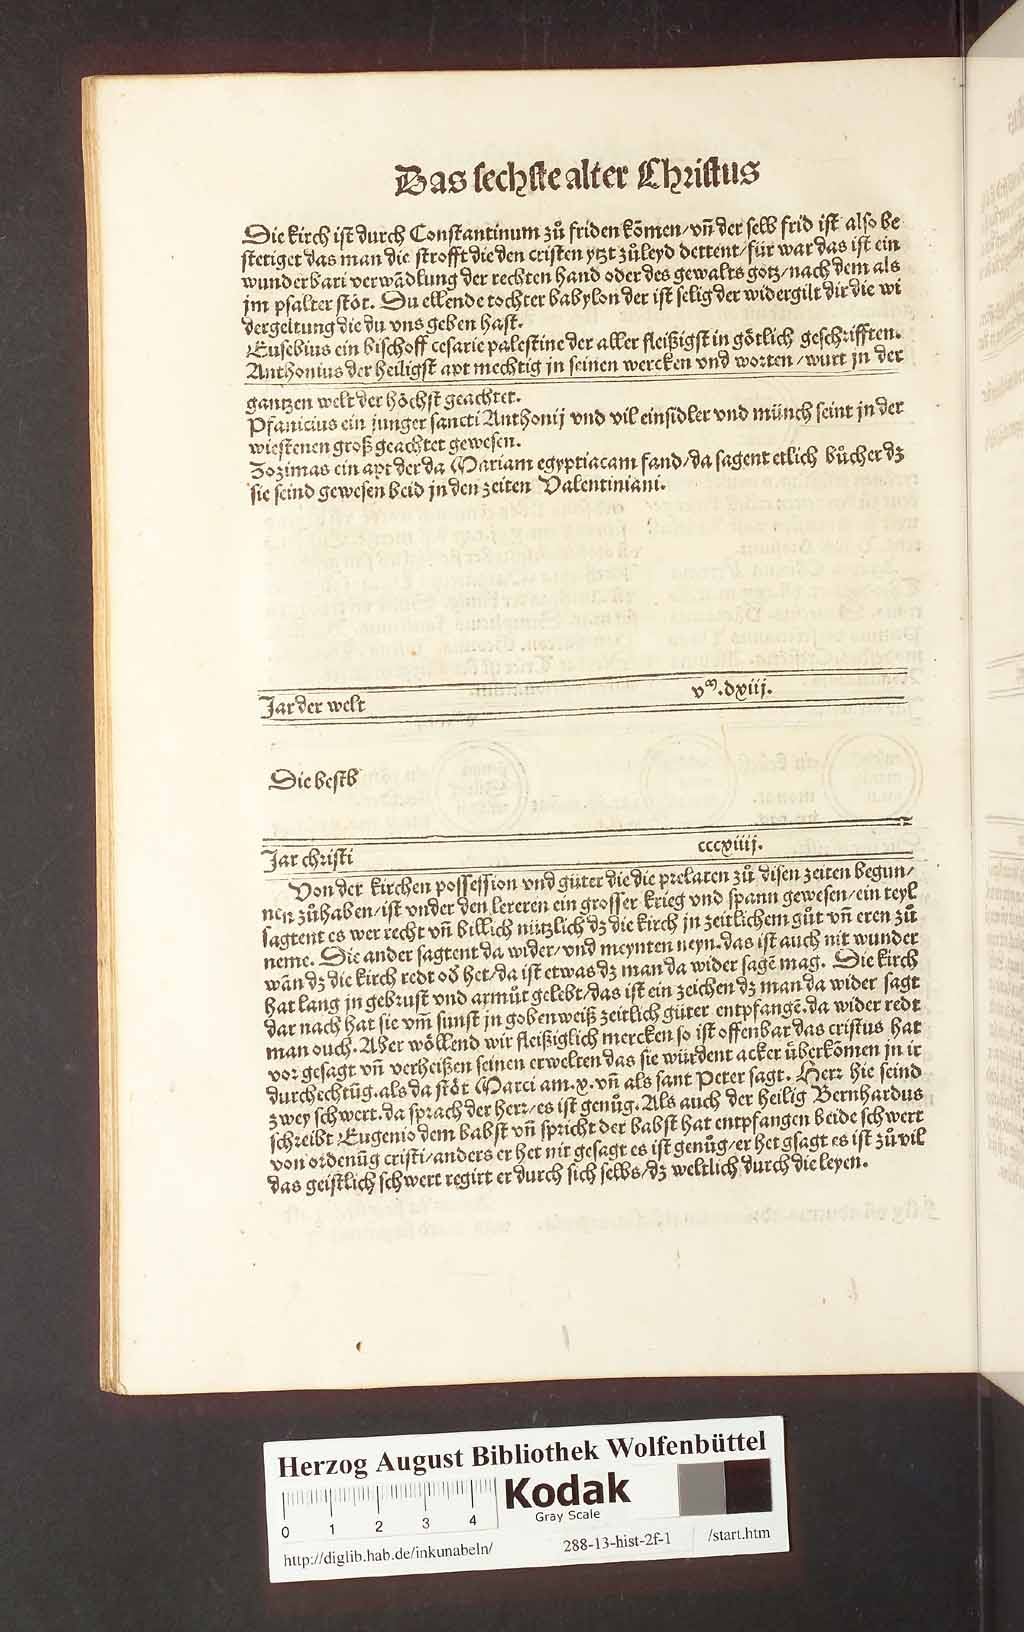 Das sechste alter Christus
Die kirch ist durch Constantinum zů friden kōmen/vñ der selb frid ist also be
stetiget das man die strofft die den cristen ytzt zů leyd dettent/für war das ist ein
wunderbari verwādlung der rechten hand oder des gewalts gotz/nach dem als
jm psalter stöt. Du ellende tochter babylon der ist selig der widergilt dir die wi
dergeltung die du vns geben hast.
Eusebius ein bischoff cesarie palestine der aller fleißigst in götlich geschrifften.
Anthonius der heiligst apt mechtig jn seinen wercken vnd worten/wurt jn der
gantzen welt der höchst geachtet.
Pfanicius ein junger sancti Anthonij vnd vil einsidler vnd münch seint jn der
wiestenen groß geachtet gewesen.
Zozimas ein apt der da Mariam egyptiacam fand/da sagent etlich bůcher dz
sie seind gewesen beid jn den zeiten Valentiniani.
Jar der welt v^m.dxiij.
Die bestb
Jar christi cccxiiij.
Von der kirchen possession vnd güter die die prelaten zů disen zeiten begun/
nen zů haben/ist vnder den lereren ein grosser krieg vnd spann gewesen/ein teyl
sagtent es wer recht vñ billich nützlich dz die kirch jn zeitlichem gůt vñ eren zů
neme. Die ander sagtent da wider/vnd meynten neyn.das ist auch nit wunder
wān dz die kirch redt od het/da ist etwas dz man da wider sagē mag. Die kirch
hat lang jn gebrust vnd armůt gelebt/das ist ein zeichen dz man da wider sagt
dar nach hat sie vm̄ sunst jn goben weiß zeitlich güter entpfangē.da wider redt
man ouch. Aber wöllend wir fleißiglich mercken so ist offenbar das cristus hat
vor gesagt vñ verheißen seinen erwelten das sie würdent acker überkōmen jn ir
durchechtūg.als da stöt Marci am.x.vñ als sant Peter sagt. Herr hie seind
zwey schwert.da sprach der herr/es ist genůg. Als auch der heilig Bernhardus
schreibt Eugenio dem babst vñ spricht der babst hat entpfangen beide schwert
von ordenūg cristi/anders er het nit gesagt es ist genůg/er het gsagt es ist zů vil
das geistlich schwert regirt er durch sich selbs/dz weltlich durch die leyen.
Herzog August Bibliothek Wolfenbüttel
0 1 2 3 4
Kodak
Gray Scale
http://diglib.hab.de/inkunabeln/ 288-13-hist-2f-1 /start.htm